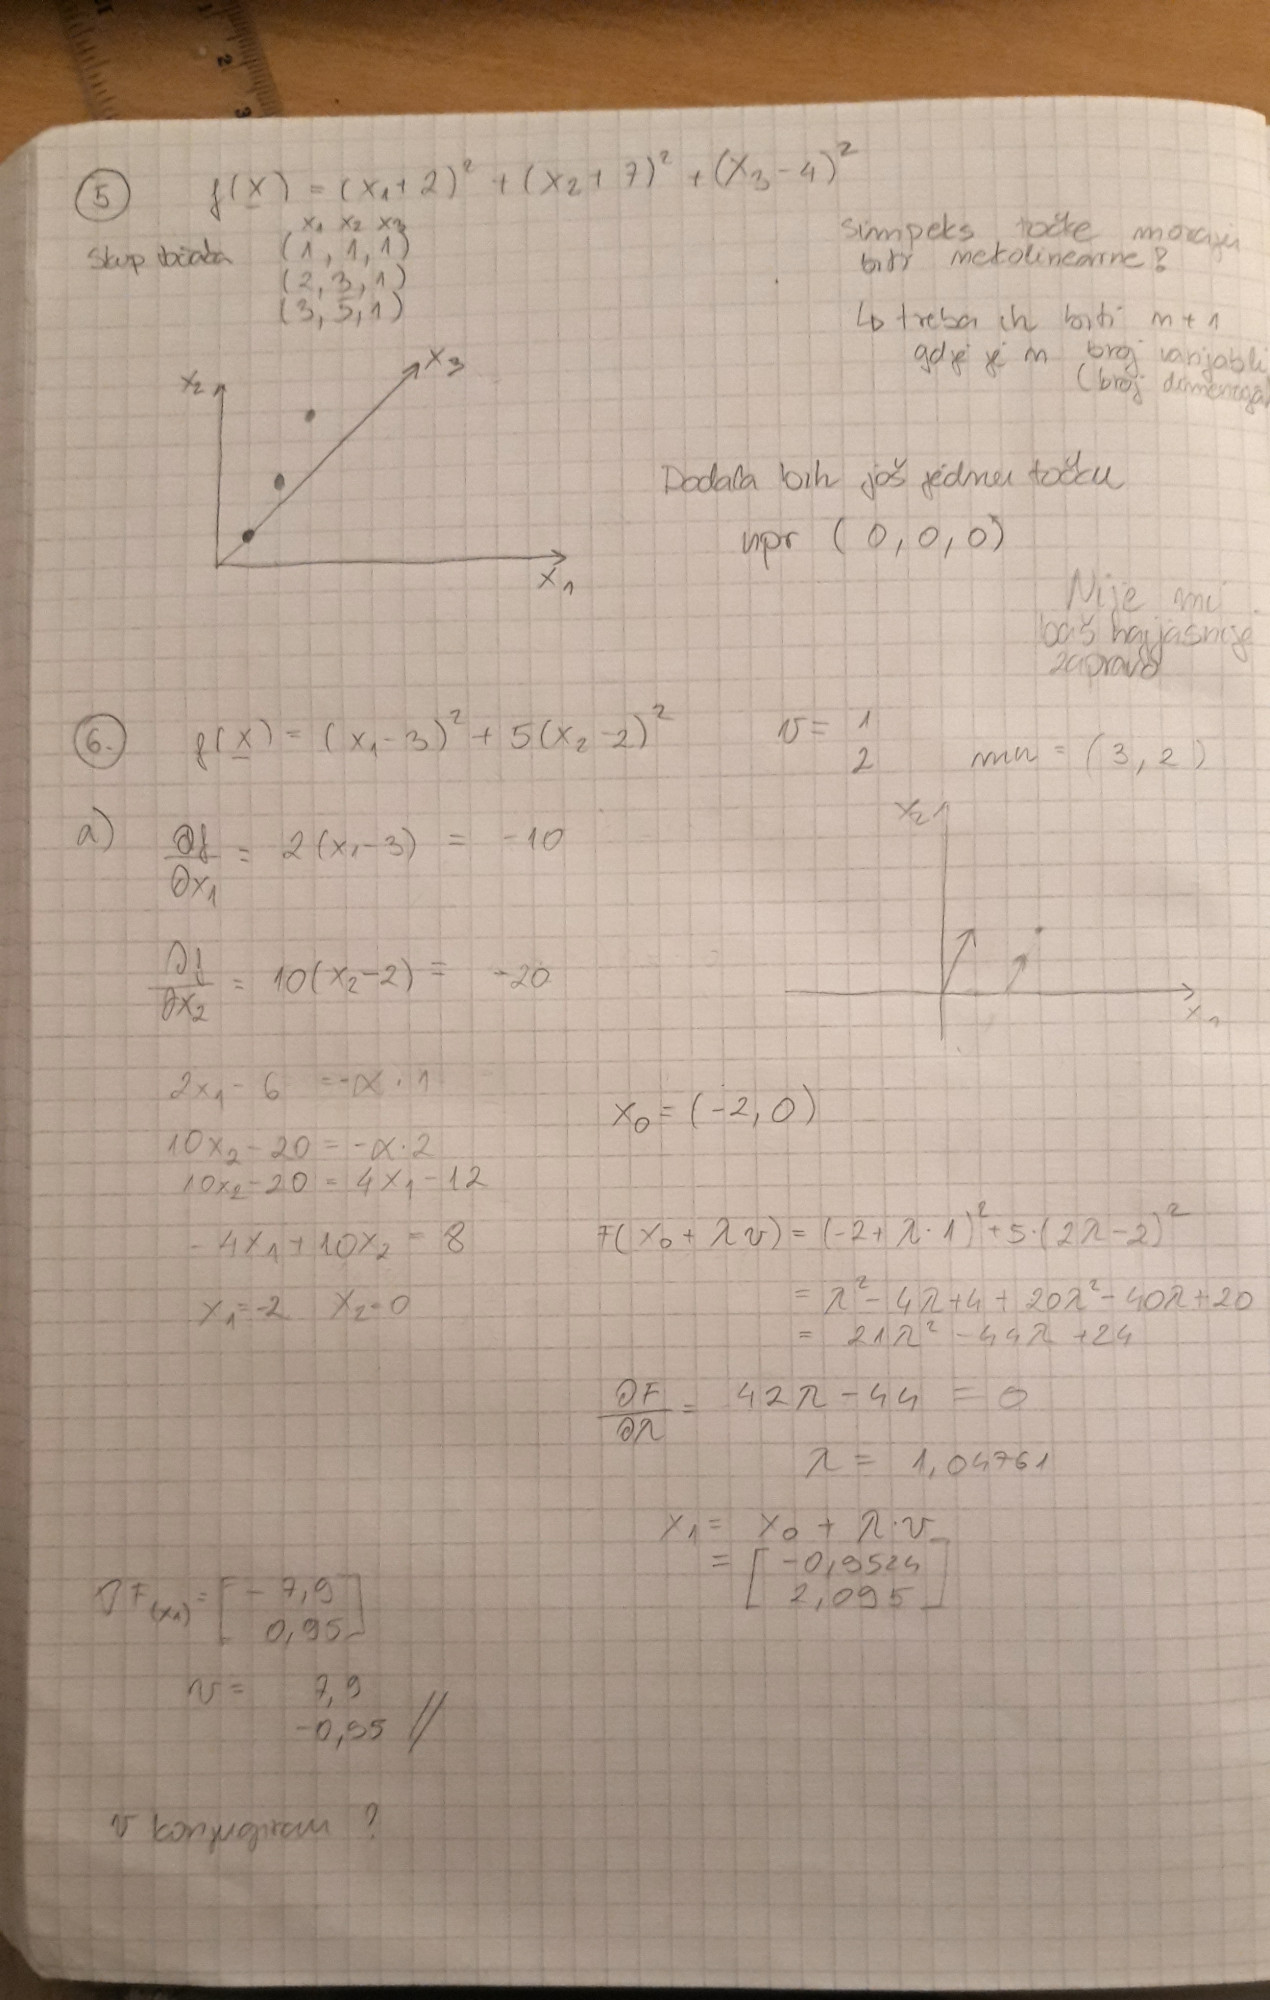 5 f(x) = (x1+2)² + (x2+7)² + (x3-4)²
x1 x2 x3
Skup točaka (1, 1, 1)
(2, 3, 1)
(3, 5, 1)
simpeks točke moraju
biti nekolinearne?
↳ treba ih biti n+1
gdje je n broj varijabli
(broj
x2
x3
x1
Dodala bih još jednu točku
npr (0,0,0)
Nije mi
baš najjasnije
zapravo
6. f(x) = (x1-3)² + 5(x2-2)²
v = 1
2
min = (3, 2)
a) ∂f/∂x1 = 2(x1-3) = -10
∂f/∂x2 = 10(x2-2) = -20
x2
x1
2x1 - 6 = -α · 1
10x2 - 20 = -α · 2
10x2 - 20 = 4x1 - 12
-4x1 + 10x2 = 8
x1 = -2 x2 = 0
x0 = (-2, 0)
F(x0 + λv) = (-2 + λ · 1)² + 5 · (2λ - 2)²
= λ² - 4λ + 4 + 20λ² - 40λ + 20
= 21λ² - 44λ + 24
∂F/∂λ = 42λ - 44 = 0
λ = 1,04761
x1 = x0 + λ·v
= [-0,9524
2,095]
∇F(x1) = [-7,9
0,95]
v = 7,9
-0,95 //
v konjugiran ?